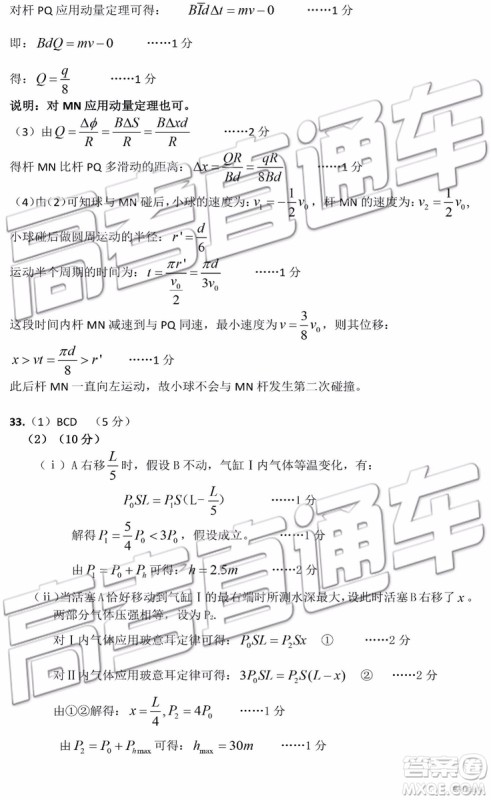 对杆 PQ 应用动量定理可得： BĪdΔt = mv − 0 ……1 分
即：BdQ = mv − 0 ……1 分
得：Q = q/8 ……1 分
说明：对 MN 应用动量定理也可。
（3）由 Q = Δϕ/R = BΔS/R = BΔxd/R ……2 分
得杆 MN 比杆 PQ 多滑动的距离：Δx = QR/Bd = qR/8Bd ……1 分
（4）由（2）可知球与 MN 碰后，小球的速度为：v₁ = −1/2 v₀，杆 MN 的速度为：v₂ = 1/2 v₀，
小球碰后做圆周运动的半径：r' = d/6
运动半个周期的时间为：t = πr'/(v₀/2) = πd/3v₀ ……1 分
这段时间内杆 MN 减速到与 PQ 同速，最小速度为 v = 3/8 v₀，则其位移：
x > vt = πd/8 > r' ……1 分
此后杆 MN 一直向左运动，故小球不会与 MN 杆发生第二次碰撞。
33.（1）BCD （5 分）
（2）（10 分）
（ⅰ）A 右移 L/5 时，假设 B 不动，气缸Ⅰ内气体等温变化，有：
P₀SL = P₁S(L- L/5) ……1 分
解得 P₁ = 5/4 P₀ < 3P₀，假设成立。 ……1 分
由 P₁ = P₀ + Pₕ 可得：h = 2.5m ……1 分
（ⅱ）当活塞 A 恰好移动到气缸Ⅰ的最右端时所测水深最大，设此时活塞 B 右移了 x。
两部分气体压强相等，设为 P₂。
对Ⅰ内气体应用玻意耳定律可得：P₀SL = P₂Sx ① ……2 分
对Ⅱ内气体应用玻意耳定律可得：3P₀SL = P₂S(L − x) ② ……2 分
由①②解得：x = L/4, P₂ = 4P₀ ……2 分
由 P₂ = P₀ + Pₕmax 可得：hmax = 30m ……1 分
高考直通车
高考直通车